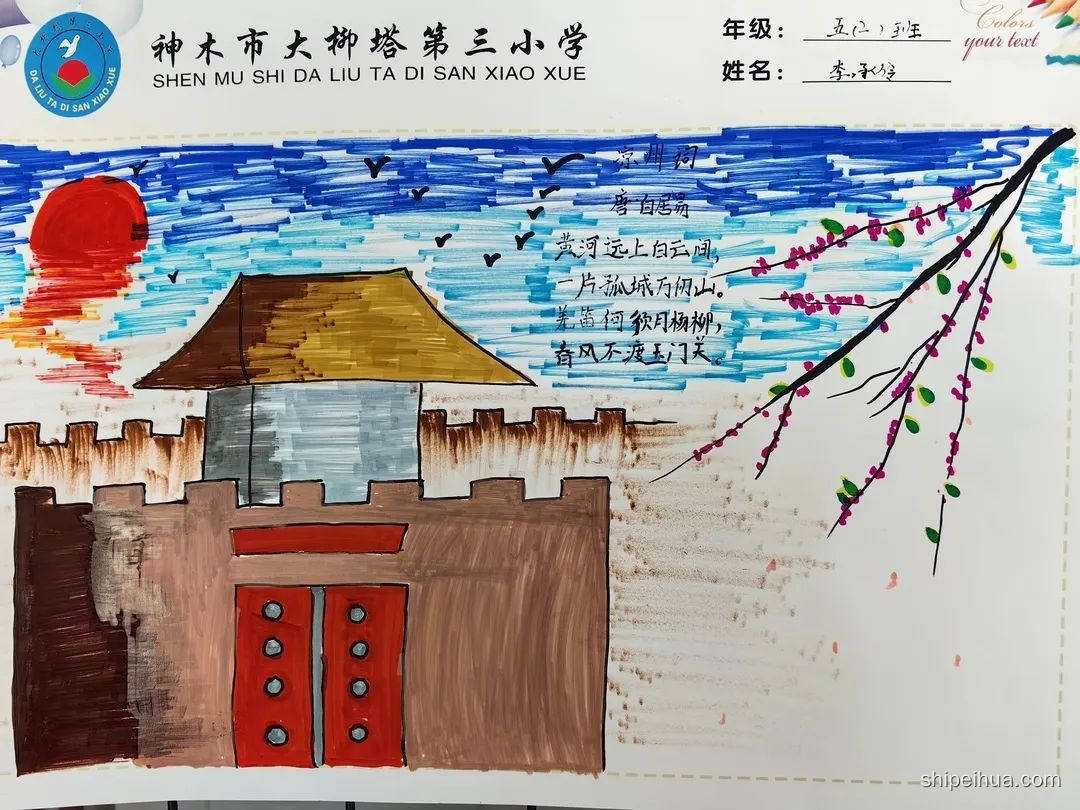 神木市大柳塔第三小学
SHEN MU SHI DA LIU TA DI SAN XIAO XUE
DA LIU TA DI SAN XIAO XUE
年级：五(二)班
姓名：李
Colors
your text
凉州词
唐 白居易
黄河远上白云间，
一片孤城万仞山。
羌笛何杨柳，
春风不渡玉门关。
shipeihua.com